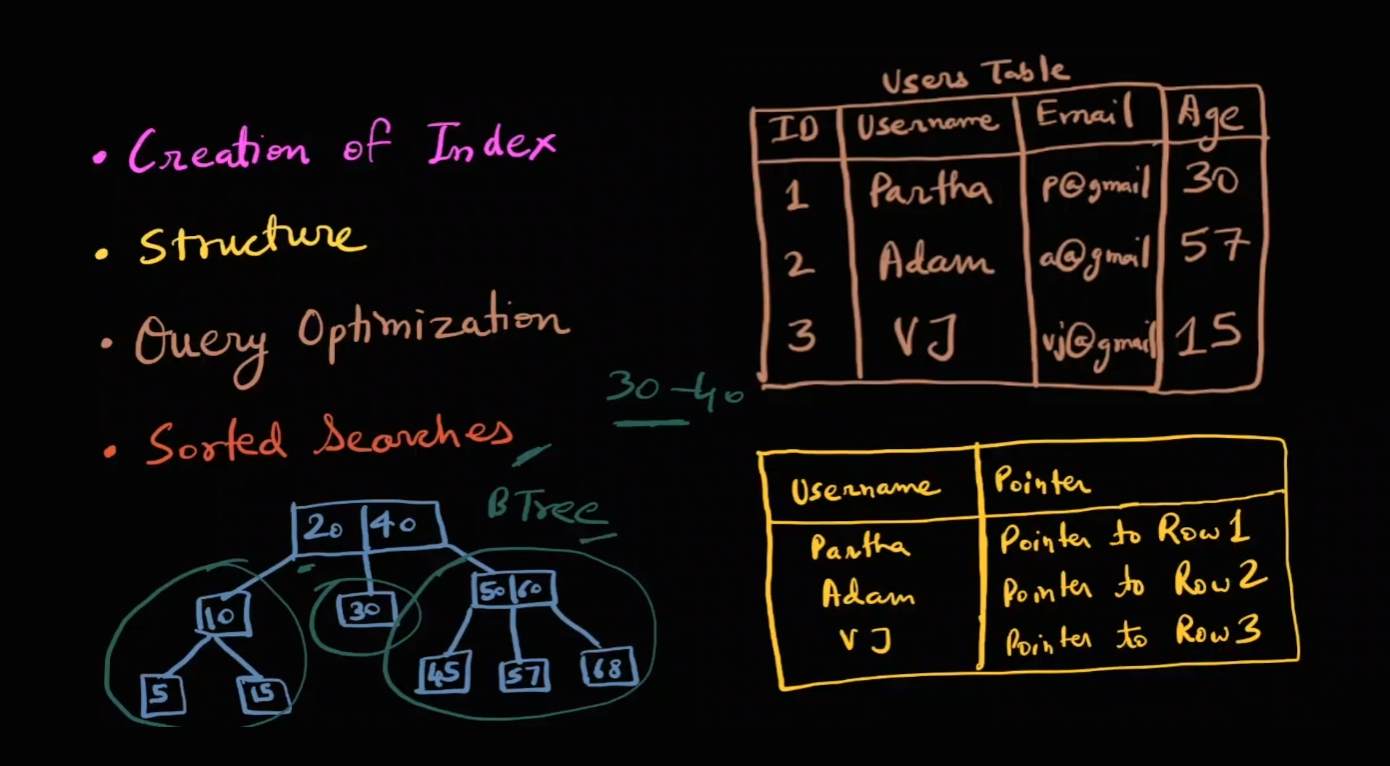 • Creation of Index
• Structure
• Query Optimization
• Sorted Searches
30-40
BTree
20 40
10 30 50 60
5 15 45 57 68
Users Table
ID Username Email Age
1 Partha p@gmail 30
2 Adam a@gmail 57
3 VJ vj@gmail 15
Username Pointer
Partha Pointer to Row 1
Adam Pointer to Row 2
VJ Pointer to Row 3